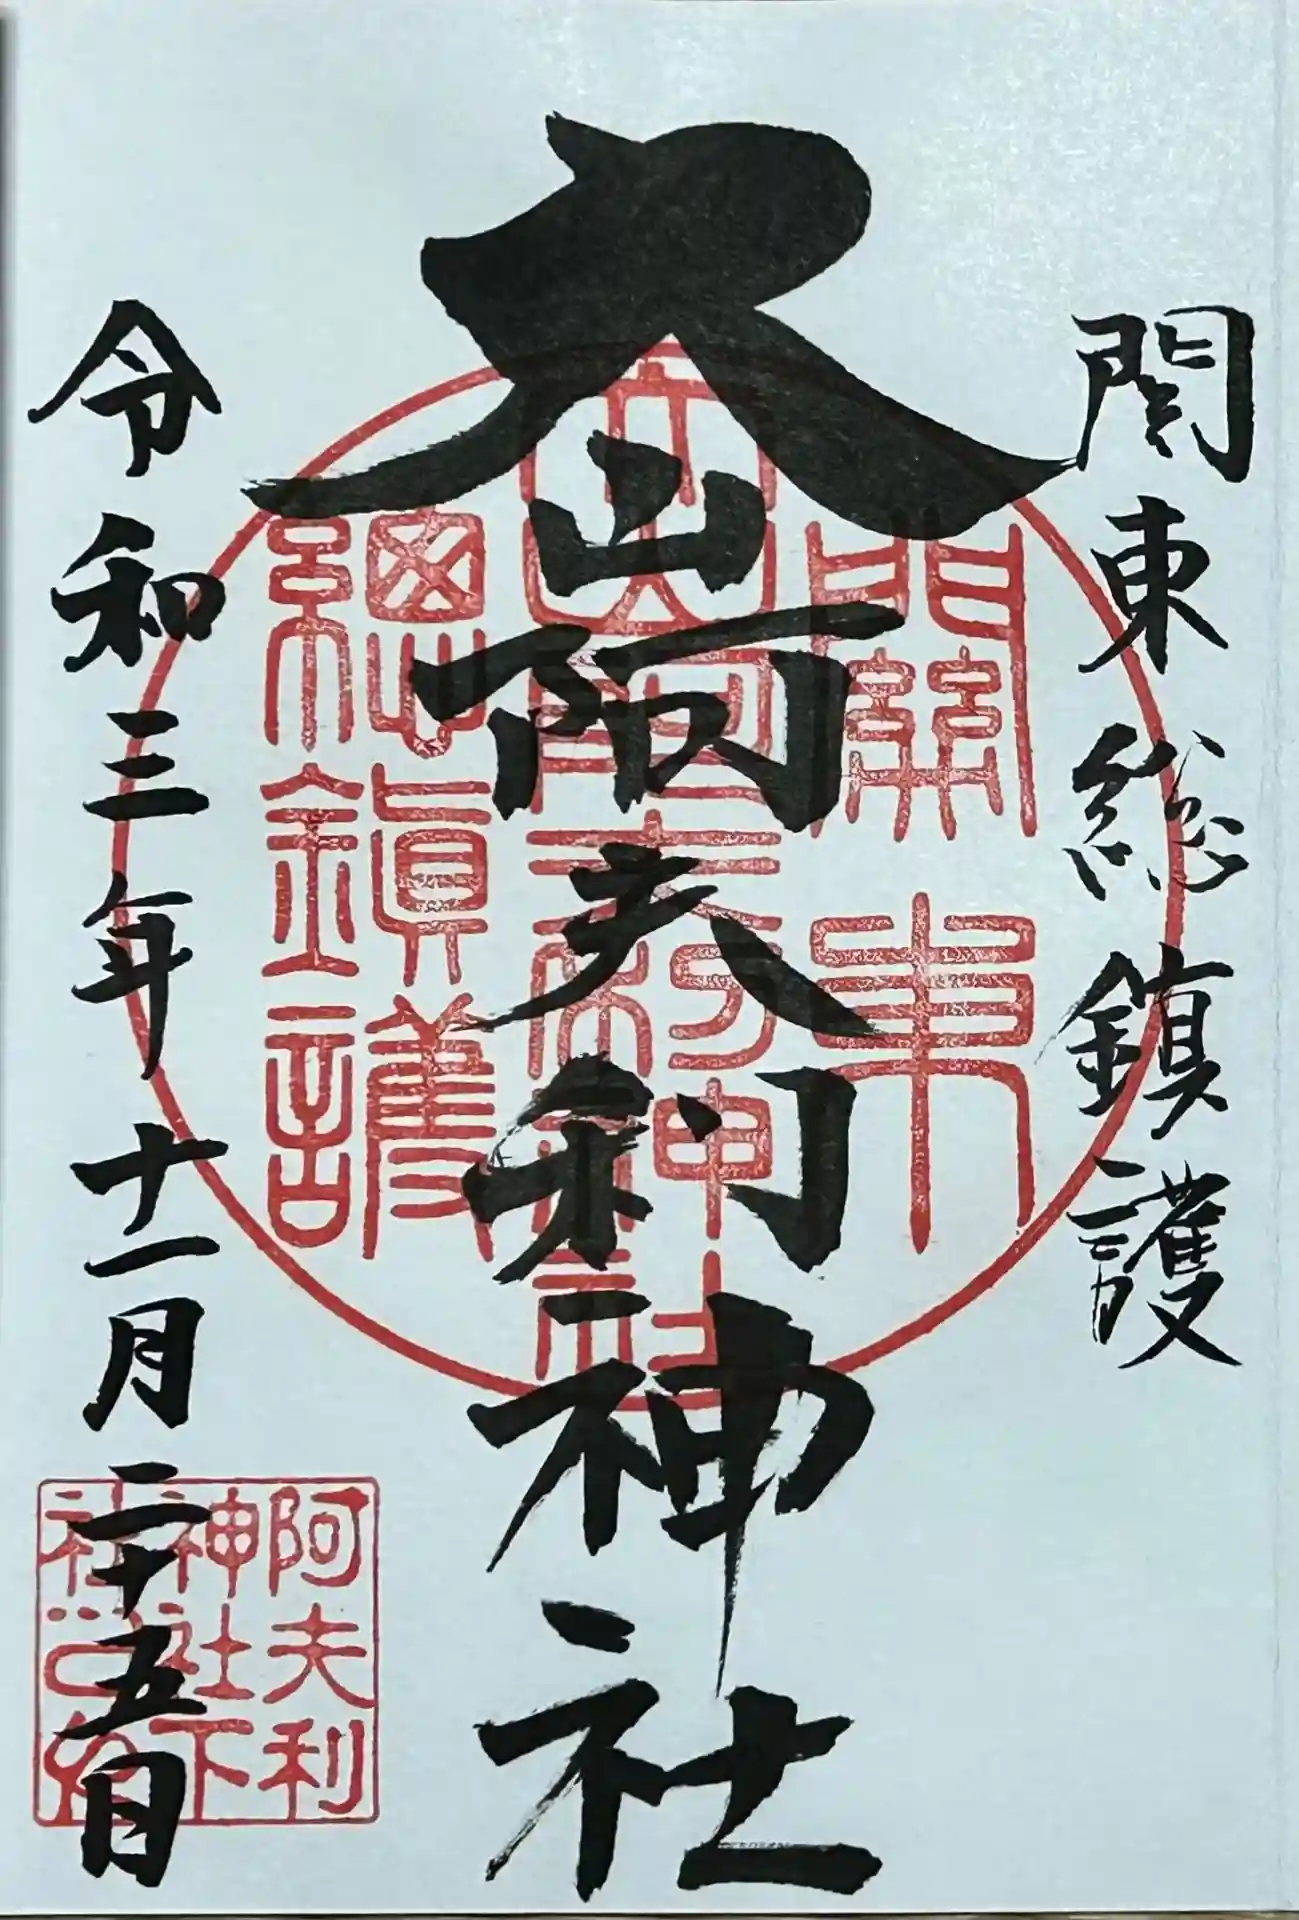 関東総鎮護
大山阿夫利神社
令和三年十一月二十五日
關東
大山阿夫利神社
總鎮護
阿夫利
神社下
社